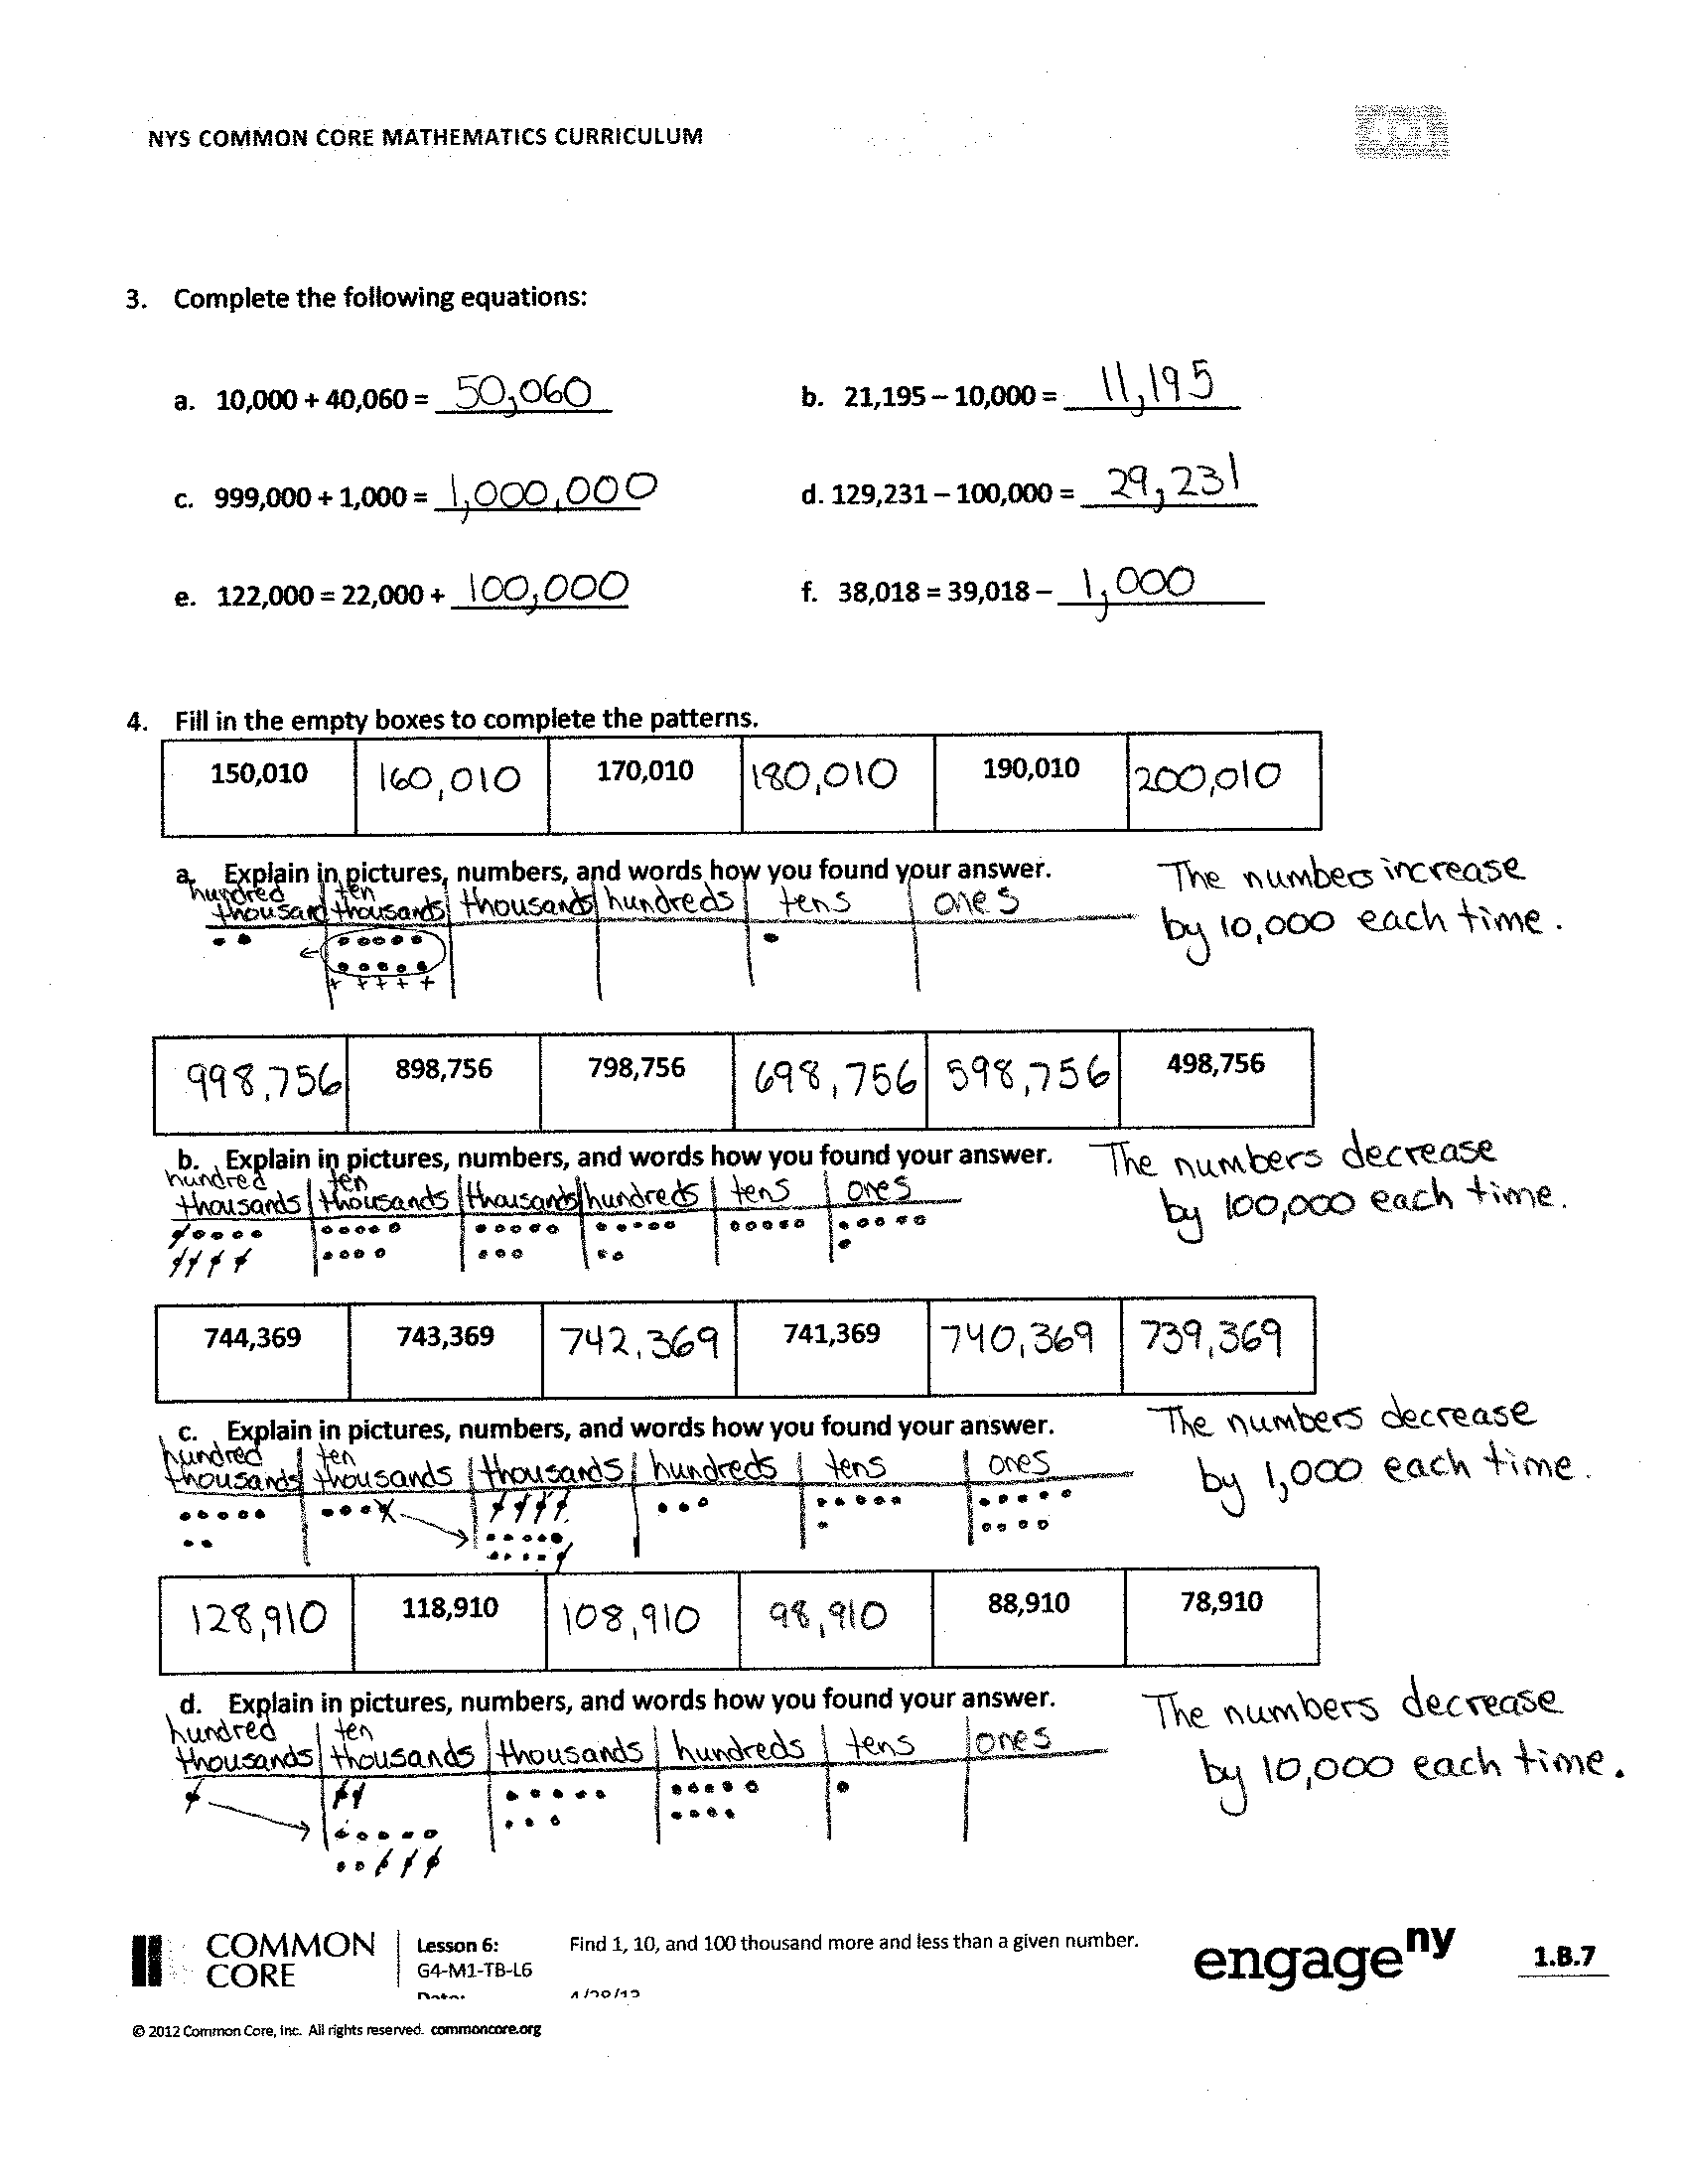 NYS COMMON CORE MATHEMATICS CURRICULUM
3. Complete the following equations:
a. 10,000 + 40,060 = 50,060 b. 21,195 – 10,000 = 11,195
c. 999,000 + 1,000 = 1,000,000 d. 129,231 – 100,000 = 29,231
e. 122,000 = 22,000 + 100,000 f. 38,018 = 39,018 – 1,000
4. Fill in the empty boxes to complete the patterns.
150,010 160,010 170,010 180,010 190,010 200,010
a. Explain in pictures, numbers, and words how you found your answer.
hundred thousand ten thousands thousands hundreds tens ones
The numbers increase
by 10,000 each time.
998,756 898,756 798,756 698,756 598,756 498,756
b. Explain in pictures, numbers, and words how you found your answer.
hundred thousands ten thousands thousands hundreds tens ones
The numbers decrease
by 100,000 each time.
744,369 743,369 742,369 741,369 740,369 739,369
c. Explain in pictures, numbers, and words how you found your answer.
hundred thousands ten thousands thousands hundreds tens ones
The numbers decrease
by 1,000 each time.
128,910 118,910 108,910 98,910 88,910 78,910
d. Explain in pictures, numbers, and words how you found your answer.
hundred thousands ten thousands thousands hundreds tens ones
The numbers decrease
by 10,000 each time.
COMMON
CORE
Lesson 6: Find 1, 10, and 100 thousand more and less than a given number.
G4-M1-TB-L6
engage ny
1.B.7
© 2012 Common Core, Inc. All rights reserved. commoncore.org